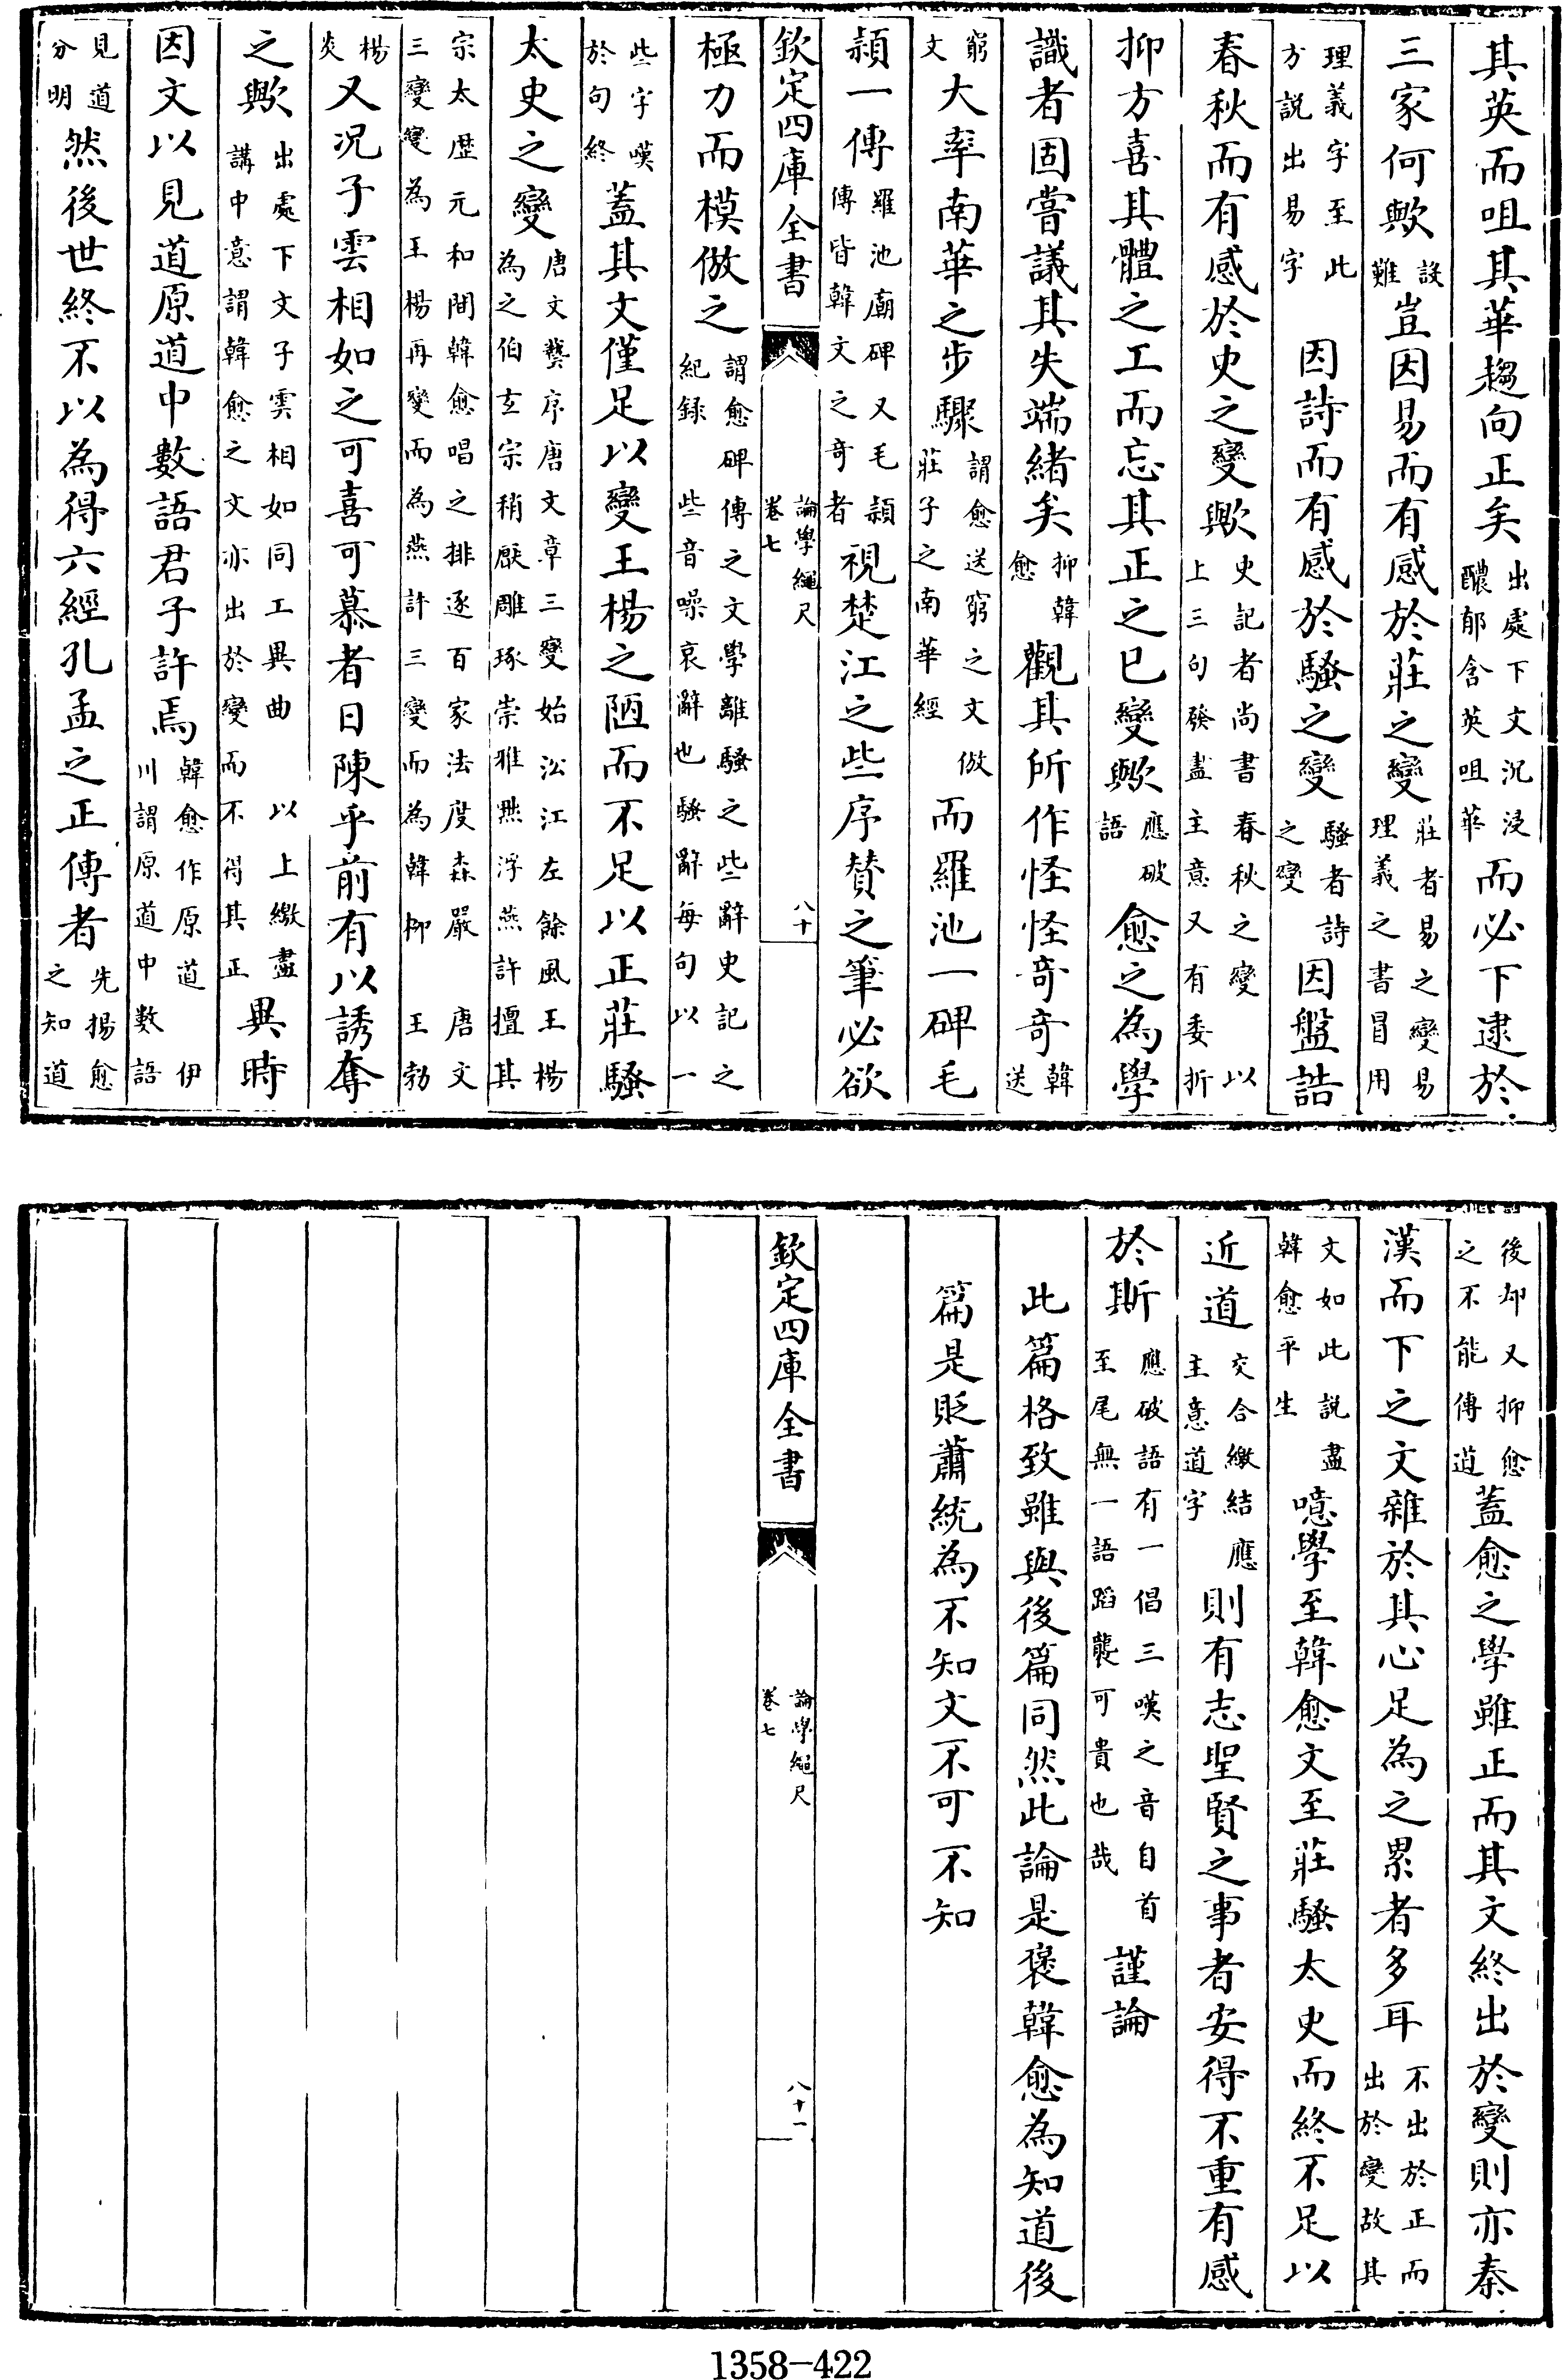 其英而咀其華趨向正矣出處下文沉浸醲郁含英咀華而必下逮於
三家何歟設難豈因易而有感於莊之變莊者易之變易理義之書冒用
理義字至此方説出易字因詩而有感於騷之變騷者詩之變因盤誥
春秋而有感於史之變歟史記者尚書春秋之變以上三句發盡主意又有委折
抑方喜其體之工而忘其正之已變歟應破語愈之為學
識者固嘗議其失端緒矣抑韓愈觀其所作怪怪奇奇韓送
窮文大率南華之步驟謂愈送窮之文倣莊子之南華經而羅池一碑毛
頴一傳羅池廟碑又毛頴傳皆韓文之奇者視楚江之些序賛之筆必欲
欽定四庫全書
論學繩尺
卷七
八十
極力而模倣之謂愈碑傳之文學離騷之些辭史記之紀録些音噪哀辭也騷辭每句以一
些字嘆於句終蓋其文僅足以變王楊之陋而不足以正莊騷
太史之變唐文藝序唐文章三變始㳂江左餘風王楊為之伯玄宗稍厭雕琢崇雅黜浮燕許擅其
宗太歴元和間韓愈唱之排逐百家法度森嚴三變變為王楊再變而為燕許三變而為韓柳唐文王勃
楊炎又况子雲相如之可喜可慕者日陳乎前有以誘奪
之歟出處下文子雲相如同工異曲以上繳盡講中意謂韓愈之文亦出於變而不得其正異時
因文以見道原道中數語君子許焉韓愈作原道伊川謂原道中數語
見道分明然後世終不以為得六經孔孟之正傳者先揚愈之知道
後却又抑愈之不能傳道蓋愈之學雖正而其文終出於變則亦秦
漢而下之文雜於其心足為之累者多耳不出於正而出於變故其
文如此説盡韓愈平生噫學至韓愈文至莊騷太史而終不足以
近道交合繳結應主意道字則有志聖賢之事者安得不重有感
於斯應破語有一倡三嘆之音自首至尾無一語蹈襲可貴也哉謹論
此篇格致雖與後篇同然此論是褒韓愈為知道後
篇是貶蕭統為不知文不可不知
欽定四庫全書
論學繩尺
卷七
八十一
1358-422